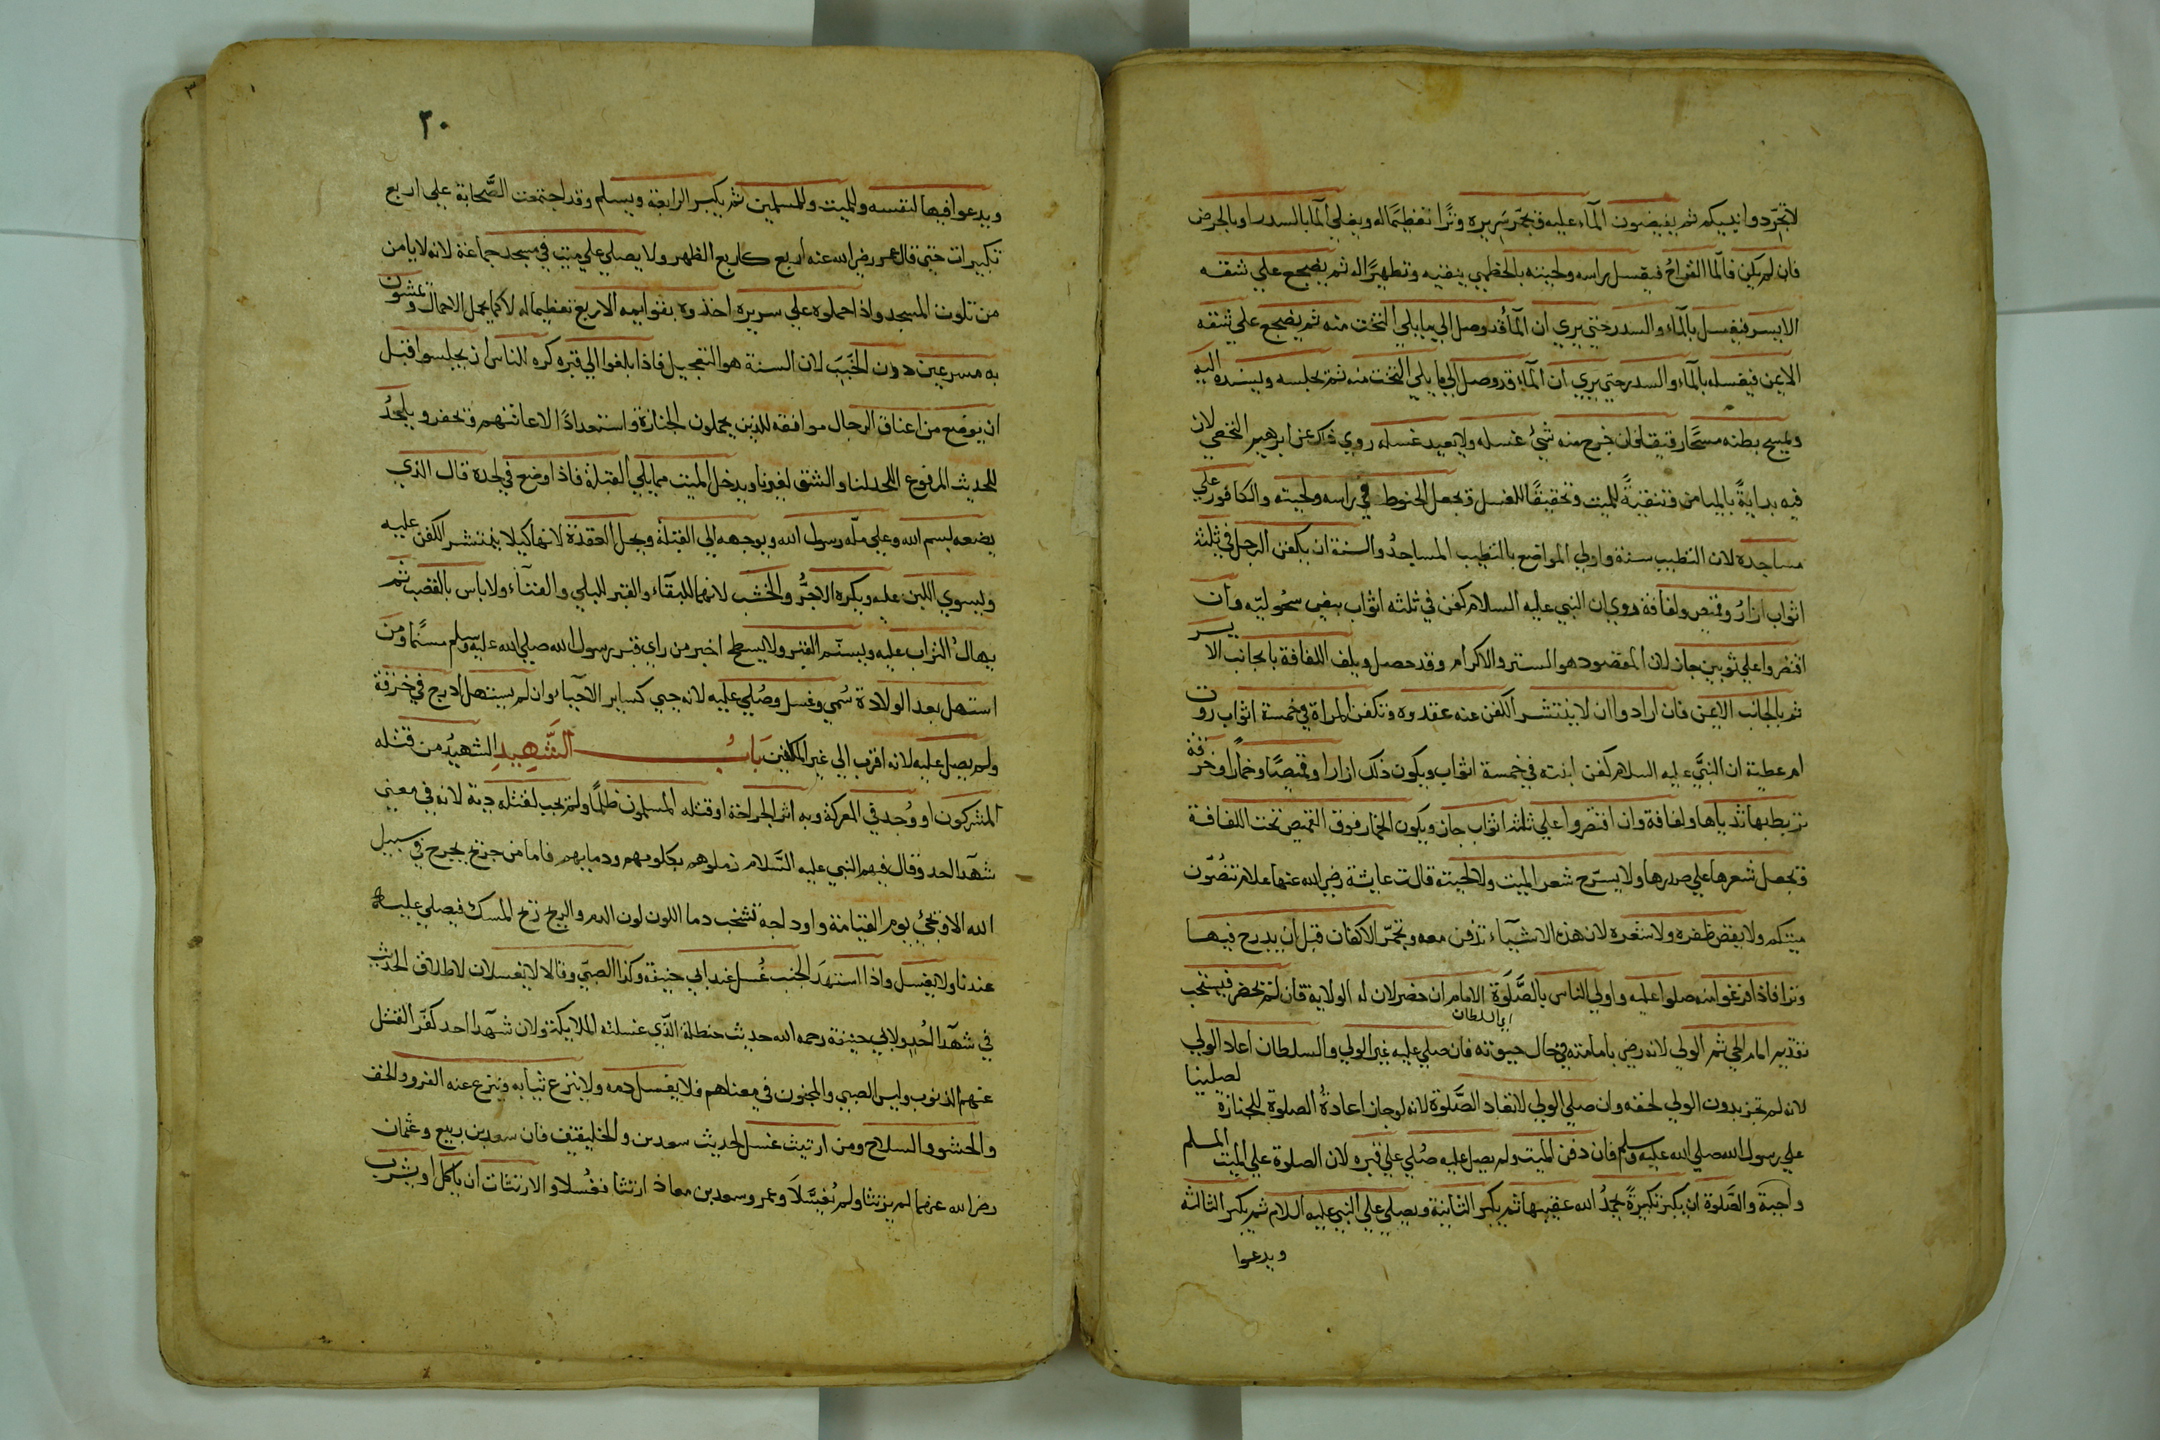 لا تجردوا نبيكم ثم يفيضون الماء عليه ويجمر سريره وترا تعظيما له ويغلي الماء بالسدر او بالحرض
فان لم يكن فالماء القراح فيغسل راسه ولحيته بالخطمي ينقيه وتطهيرا له ثم يضجع علي شقه
الايسر فيغسل بالماء والسدر حتي يري ان الماء قد وصل الي ما يلي التخت منه ثم يضجع علي شقه
الايمن فيغسله بالماء والسدر حتي يري ان الماء قد وصل الي ما يلي التخت منه ثم يجلسه ويسنده اليه
ويمسح بطنه مسحا رقيقا فان خرج منه شئ غسله ولا يعيد غسله روي ذلك عن ابرهيم النخعي لان
فيه بداية بالميامن وتنقية للميت وتحقيقا للغسل ويجعل الحنوط في راسه ولحيته والكافور علي
مساجده لان التطيب سنة واولي المواضع بالتطيب المساجد والسنة ان يكفن الرجل في ثلثة
اثواب ازار وقميص ولفافة روي ان النبي عليه السلام كفن في ثلثه اثواب بيض سحولية وان
اقتصروا علي ثوبين جاز لان المقصود هو الستر والاكرام وقد حصل ويلف اللفافة بالجانب الايسر
ثم بالجانب الايمن فان ارادوا ان لا ينتشر الكفن عنه عقدوه وتكفن المراة في خمسة اثواب روت
ام عطية ان النبي عليه السلام كفن ابنته في خمسة اثواب ويكون ذلك ازارا وقميصا وخمارا وخرقة
تربط بها ثدياها ولفافة وان اقتصروا علي ثلثة اثواب جاز ويكون الخمار فوق القميص تحت اللفافة
ويجعل شعرها علي صدرها ولا يسرح شعر الميت ولا لحيته قالت عايشة رضي الله عنها علام تنصون
ميتكم ولا يقص ظفره ولا شعره لان هذه الاشياء تدفن معه وتجمر الاكفان قبل ان يدرج فيها
وترا فاذا فرغوا منه صلوا عليه واولي الناس بالصلوة الامام ان حضر لان له الولاية فان لم يحضر فيستحب
اي السلطان
تقديم امام الحي ثم الولي لانه رضي بامامته في حال حيوته فان صلي عليه غير الولي والسلطان اعاد الولي
لانه لم تجز بدون الولي لحقه وان صلي الولي لا تعاد الصلوة لانه لو جاز اعادة الصلوة للجنازة لصلينا
علي رسول الله صلي الله عليه وسلم فان دفن الميت ولم يصل عليه صلي علي قبره لان الصلوة علي الميت المسلم
واجبة والصلوة ان يكبر تكبيرة يحمد الله عقيبها ثم يكبر الثانية ويصلي علي النبي عليه السلام ثم يكبر الثالثة
ويدعوا
٣٠
ويدعوا فيها لنفسه وللميت وللمسلمين ثم يكبر الرابعة ويسلم وقد اجتمعت الصحابة علي اربع
تكبيرات حتي قال عمر رضي الله عنه اربع كاربع الظهر ولا يصلي علي ميت في مسجد جماعة لانه لا يامن
من تلوث المسجد واذا حملوه علي سريره اخذوه بقوايمه الاربع تعظيما له لا كما يحمل الاحمال ويمشون
به مسرعين دون الخبب لان السنة هو التعجيل فاذا بلغوا الي قبره كره الناس ان يجلسوا قبل
ان يوضع من اعناق الرجال موافقه للذين يحملون الجنازة واستعدادا لاعانتهم ويحفر ويلحد
للحديث المرفوع اللحد لنا والشق لغيرنا ويدخل الميت مما يلي القبلة فاذا وضع في لحده قال الذي
يضعه بسم الله وعلي ملة رسول الله ويوجهه الي القبلة ويحل العقدة لانها كيلا ينتشر الكفن عليه
ويسوي اللبن عليه ويكره الاجر والخشب لانهما للبقاء والقبر للبلي والفناء ولا باس بالقصب ثم
يهال التراب عليه ويسنم القبر ولا يسطح اخبر من راي قبر رسول الله صلي الله عليه وسلم مسنما ومن
استهل بعد الولادة سمي وغسل وصلي عليه لانه حي كساير الاحيا وان لم يستهل ادرج في خرقة
ولم يصل عليه لانه اقرب الي غير المكلفين باب الشهيد الشهيد من قتله
المشركون او وجد في المعركة وبه اثر الجراحة او قتله المسلمون ظلما ولم يجب لقتله دية لانه في معني
شهدا احد وقال فيهم النبي عليه السلام زملوهم بكلومهم ودمايهم فاما من جريح يجرح في سبيل
الله الا ويجئ يوم القيامة واوداجه تشخب دما اللون لون الدم والريح ريح المسك فيصلي عليه
عندنا ولا يغسل واذا استشهد الجنب غسل عند ابي حنيفة وكذا الصبي وقالا لا يغسلان لاطلاق الحديث
في شهدا احد ولابي حنيفة رحمه الله حديث حنظلة الذي غسلته الملايكة ولان شهدا احد كفر القتل
عنهم الذنوب وليس الصبي والمجنون في معناهم فلا يغسل دمه ولا ينزع ثيابه وينزع عنه الفرو والخف
والحشو والسلاح ومن ارتث غسل لحديث سعدين والخليفتين فان سعد بن ربيع وعثمان
رضي الله عنهما لم يرتثا ولم يغسلا وعمر وسعد بن معاذ ارتثا فغسلا والارتثاث ان ياكل او يشرب